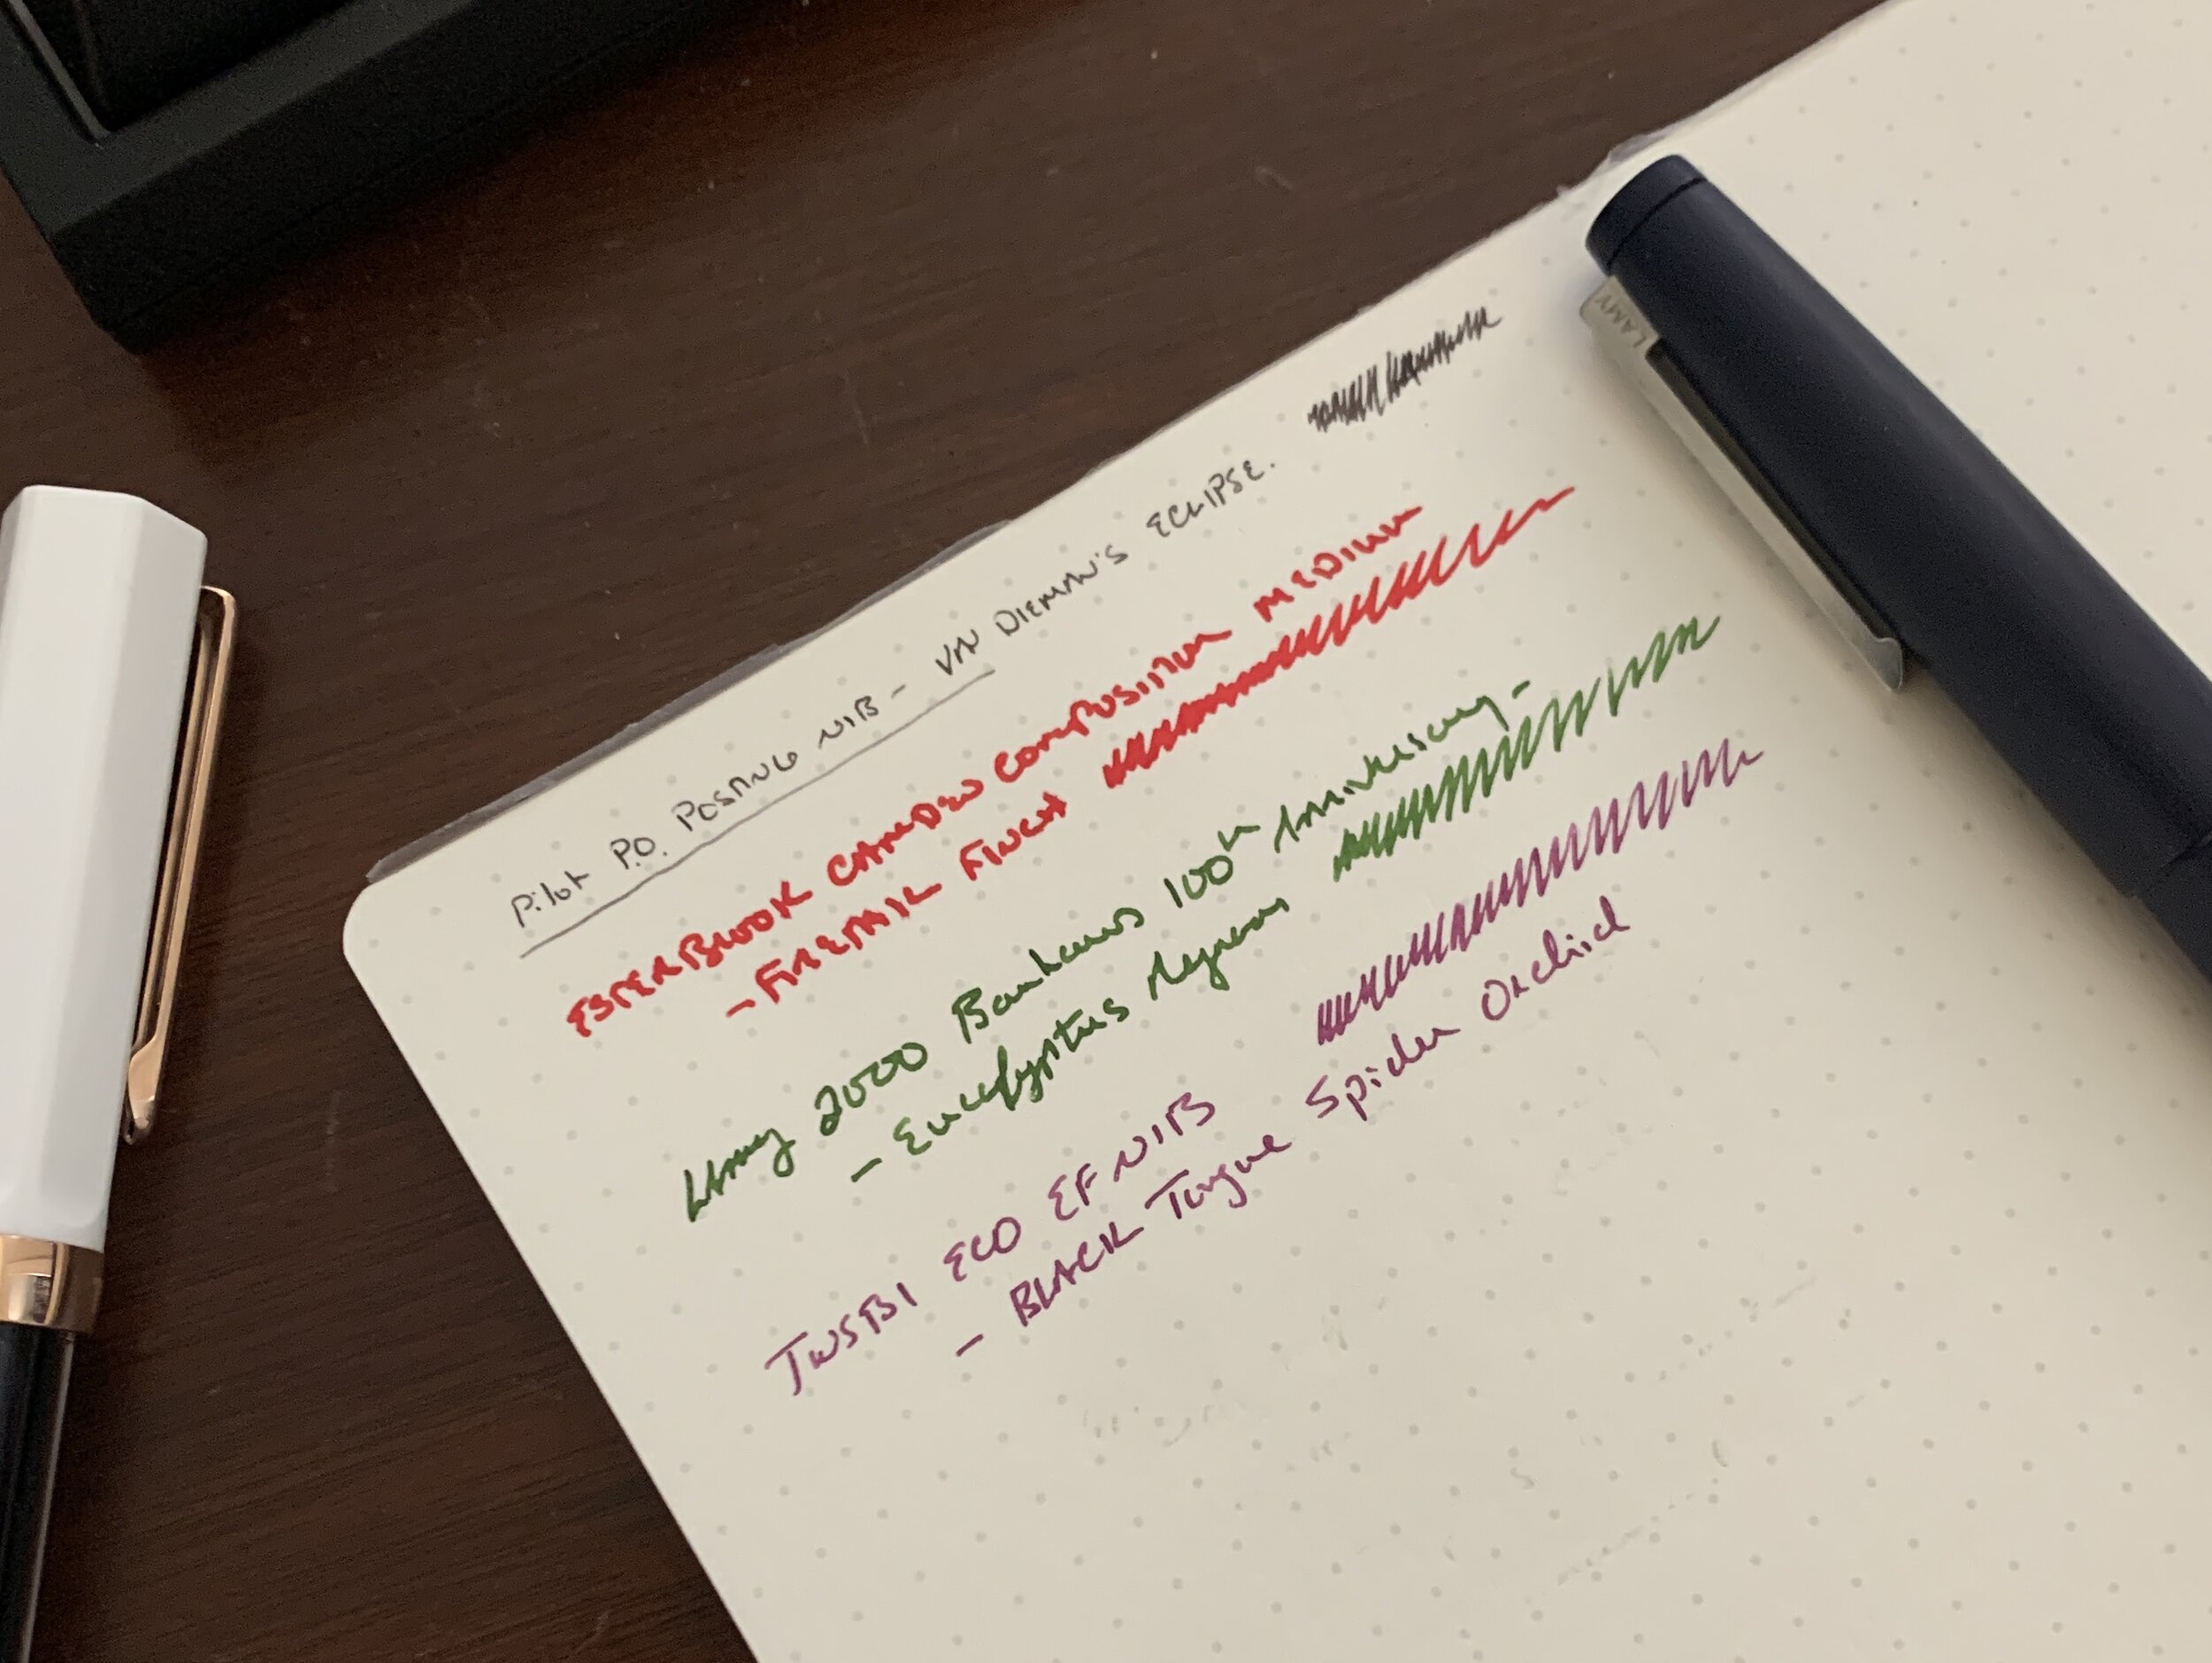 Pilot P.O. POSTING NIB - VAN DIEMAN'S ECLIPSE.
ESTERBROOK CAMDEN COMPOSITION MEDIUM
- FIRETAIL FINCH
LAmy 2000 Bauhaus 100th Anniversary -
- Eucalyptus Regnans
TWSBI ECO EF NIB
- BLACK Tongue Spider Orchid
LAMY